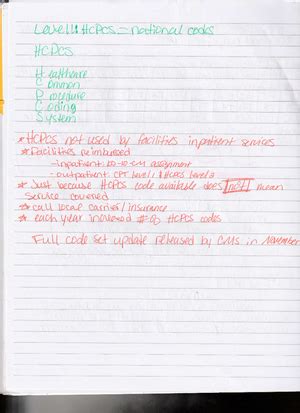 Level II: HCPCS = national codes
HCPCS
Healthcare
Common
Procedure
Coding
System
* HCPCS not used by facilities inpatient services
* Facilities reimbursed
- inpatient: assignment
- outpatient: CPT level 1 HCPCS level
* Just because HCPCS code available does not mean
service covered
* call local carrier/insurance
* each year increased # of HCPCS codes
Full code set update released by CMS in November